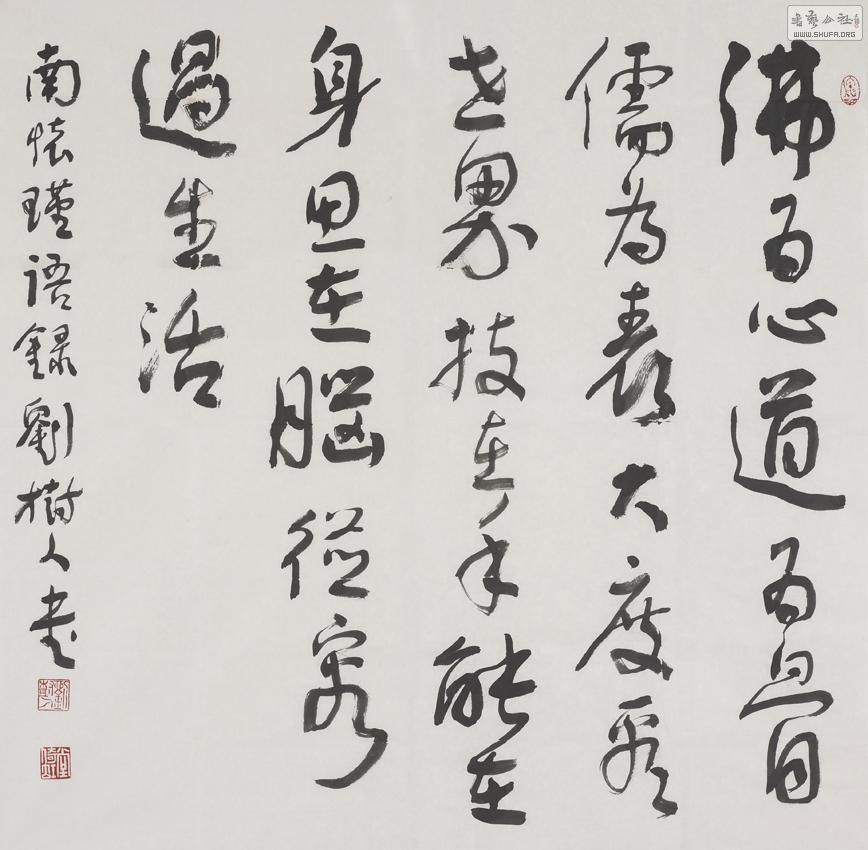 書藝公社
WWW.SHUFA.ORG
佛為心道為骨
儒為表大度看
世界技在手能在
身思在腦從容
過生活
南懷瑾語錄劉樹人書